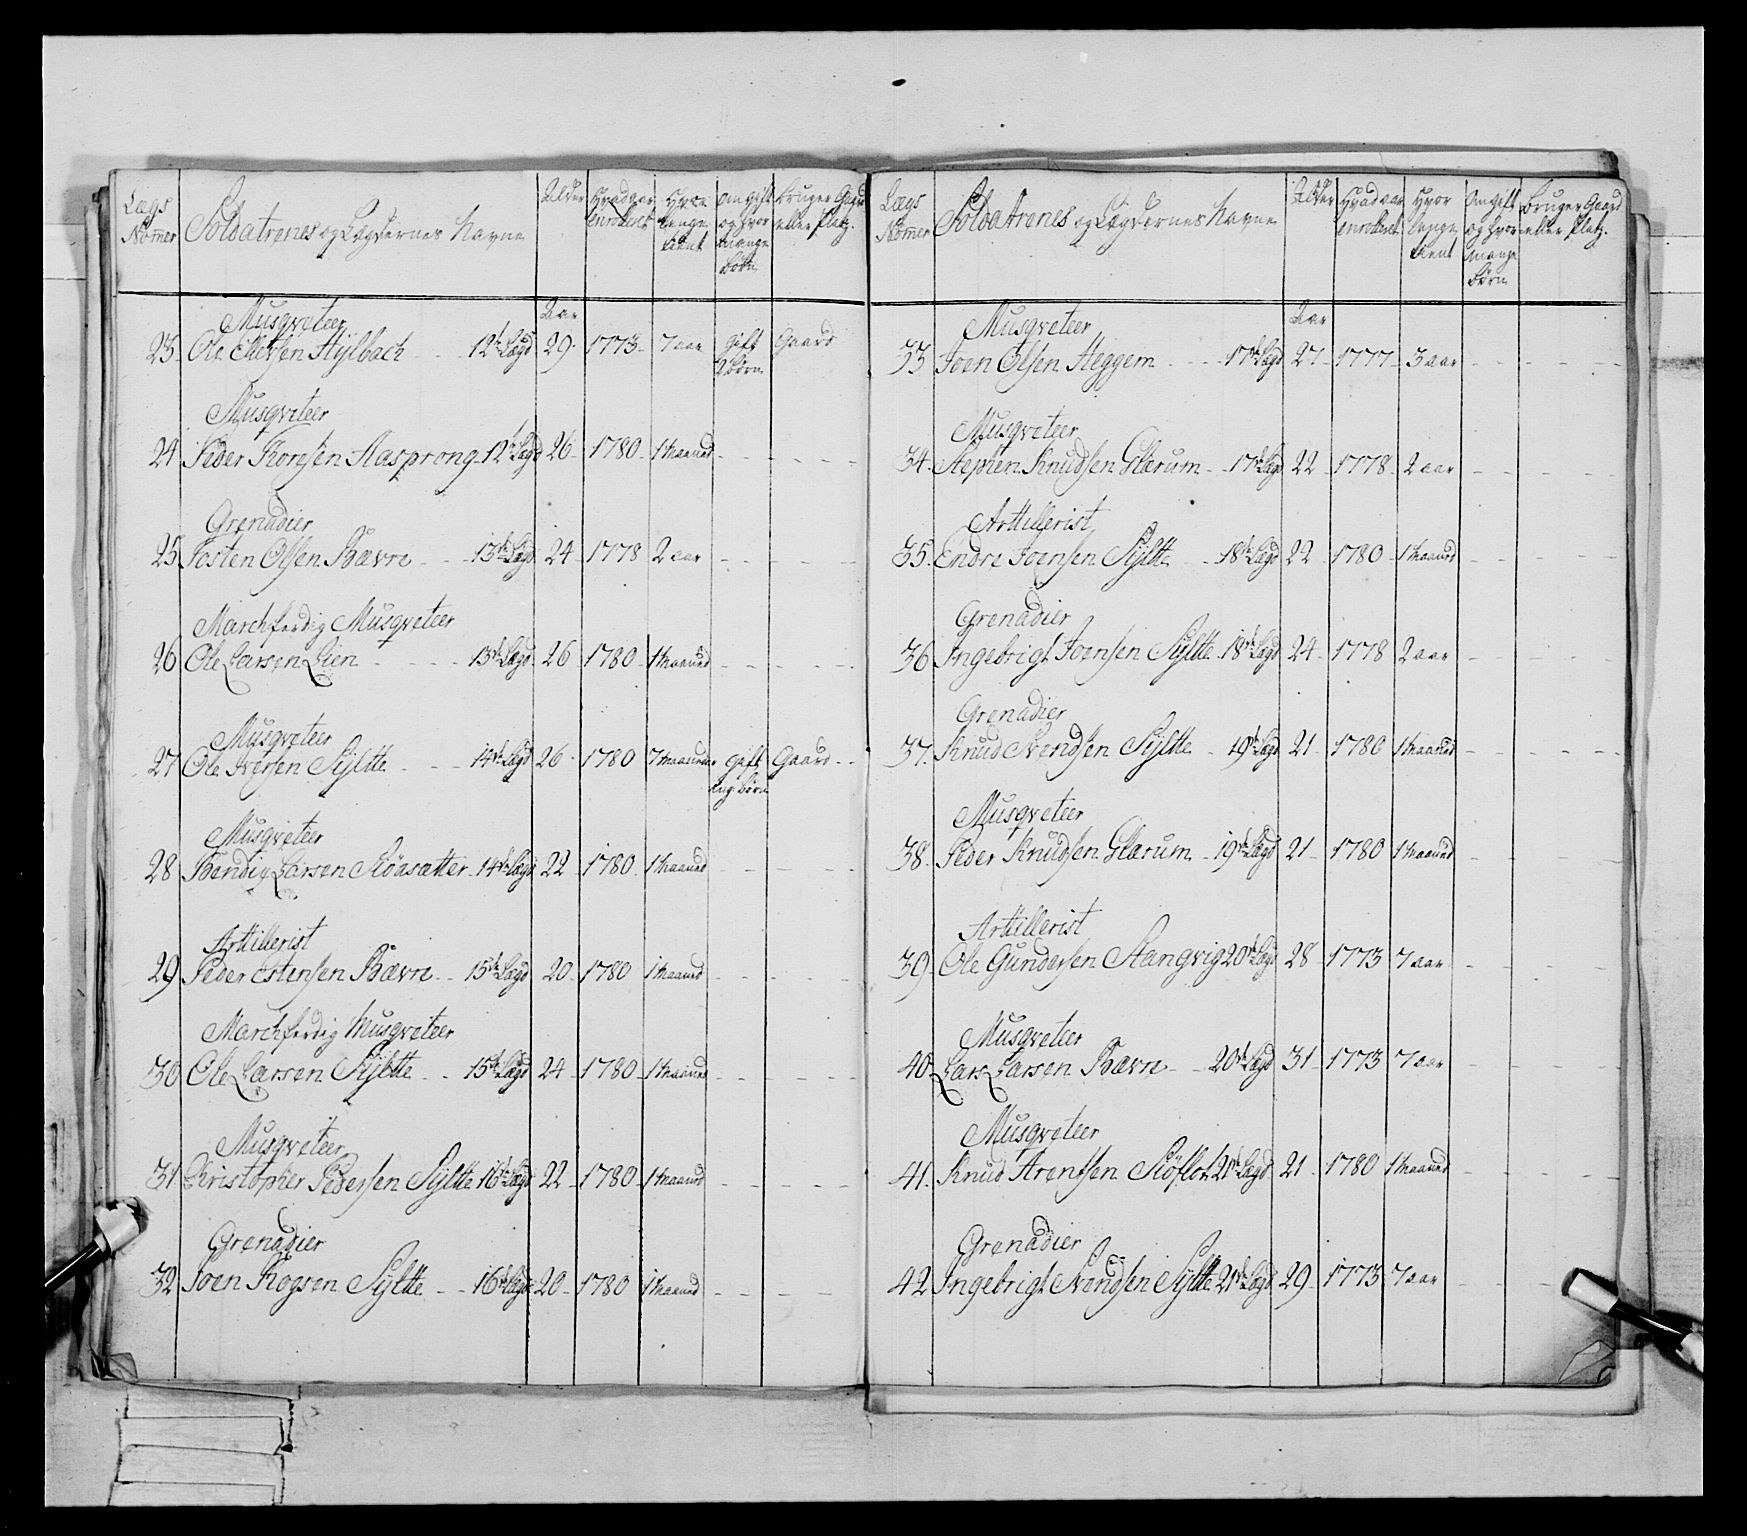 Lægs Nommer | Soldaternes og Lægdernes Navne | Alder | Hvad aar enrolleret | Hvor længe tient | Om gift og hvor mange Børn | Bruger Gaard eller Platz.
Aar
Musqveteer
23 Ole Ellefsen Hylbach 12te Lægd 29 1773 7 aar Gift 2 Børn Gaard
Musqveteer
24 Peder Toresen Aasprong 12te Lægd 26 1780 1 Maaned
Grenadier
25 Josten Olsen Bævre 13de Lægd 24 1778 2 aar
Marchferdig Musqveteer
26 Ole Larsen Lien 13de Lægd 26 1780 1 Maaned
Musqveteer
27 Ole Iversen Syltte 14de Lægd 26 1780 7 Maaneder gift ing. Børn Gaard
Musqveteer
28 Bendig Larsen Støasætter 14de Lægd 22 1780 1 Maaned
Arttillerist
29 Peder Estensen Bævre 15de Lægd 20 1780 1 Maaned
Marchferdig Musqveteer
30 Ole Larsen Syltte 15de Lægd 24 1780 1 Maaned
Musqveteer
31 Christopher Pedersen Syltte 16de Lægd 22 1780 1 Maaned
Grenadier
32 Joen Rogsen Syltte 16de Lægd 20 1780 1 Maaned
Lægs Nommer | Soldaternes og Lægdernes Navne | Alder | Hvad aar enrolleret | Hvor længe tient | Om gift og hvor mange Børn | Bruger Gaard eller Platz.
Aar
Musqveteer
33 Joen Olsen Heggem 17de Lægd 27 1777 3 aar
Musqveteer
34 Stephen Knudsen Glærum 17de Lægd 22 1778 2 aar
Arttillerist
35 Endre Joensen Syltte 18de Lægd 22 1780 1 Maaned
Grenadier
36 Ingebrigt Joensen Syltte 18de Lægd 24 1778 2 aar
Grenadier
37 Knud Svendsen Syltte 19de Lægd 21 1780 1 Maaned
Musqveteer
38 Peder Knudsen Glærum 19de Lægd 21 1780 1 Maaned
Arttillerist
39 Ole Gundersen Stangvig 20de Lægd 28 1773 7 aar
Musqveteer
40 Lars Larsen Bævre 20de Lægd 31 1773 7 aar
Musqveteer
41 Knud Arentsen 21de Lægd 21 1780 1 Maaned
Grenadier
42 Ingebrigt Svendsen Syltte 21de Lægd 29 1773 7 aar